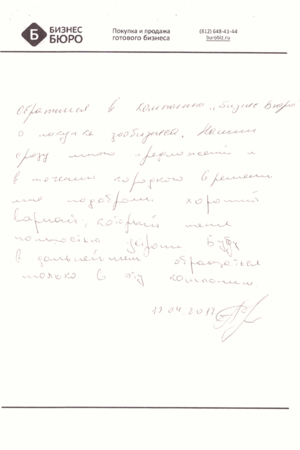 БИЗНЕС
БЮРО
Покупка и продажа
готового бизнеса
(812) 648-43-44
Обратился в компанию „Бизнес Бюро"
о покупке
сразу много предложений и
в течении короткого времени
мне подобрали хороший
вариант, который меня
полностью устроил. Буду
в дальнейшем обращаться
только в эту компанию.